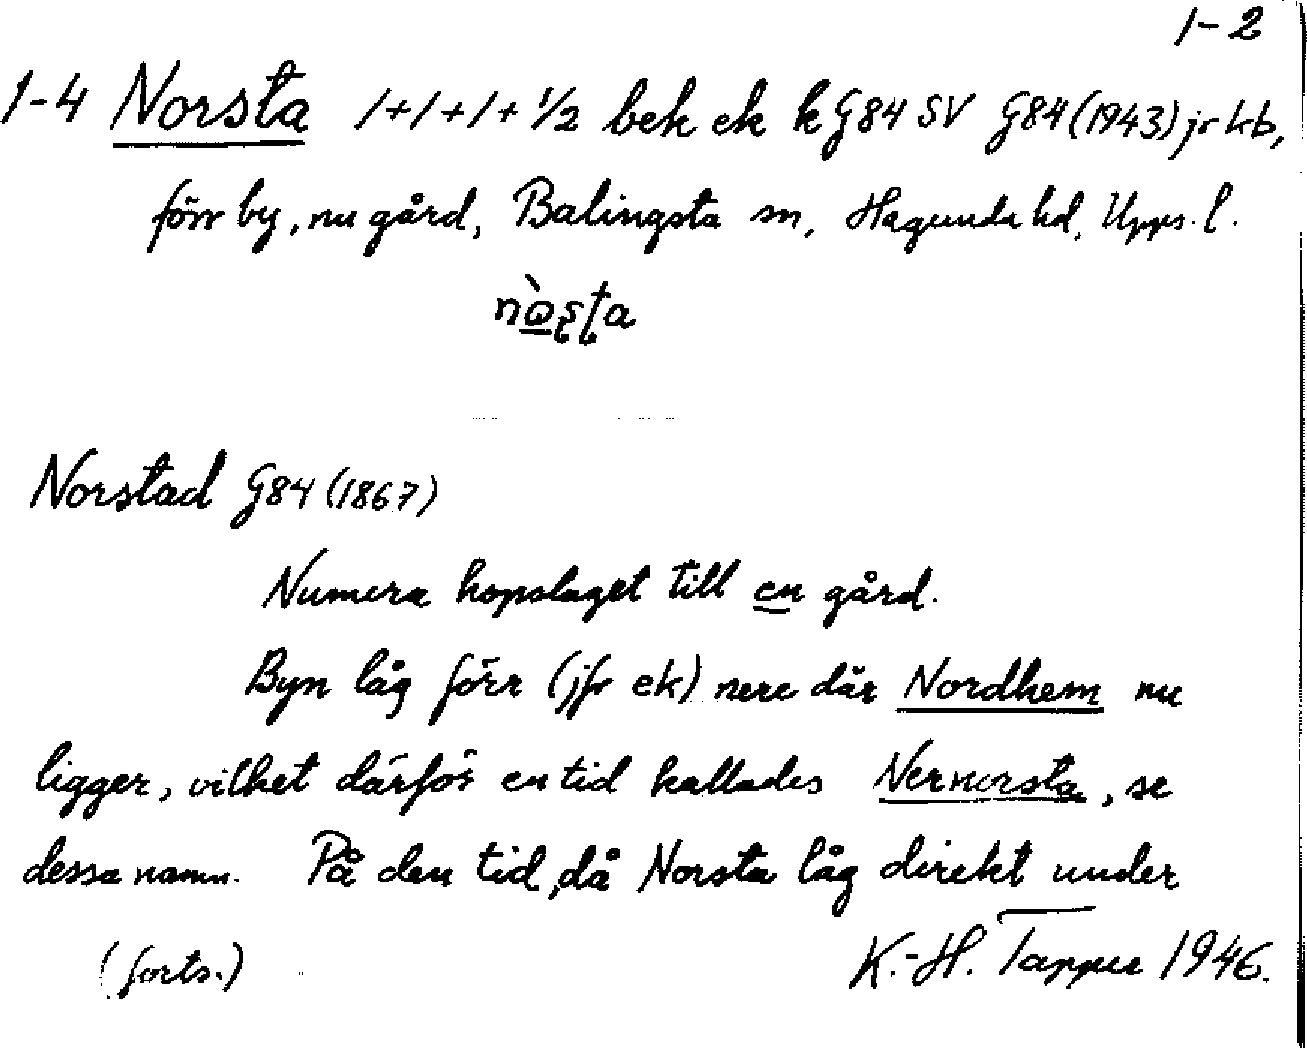 1-2
1-4 Norsta 1+1+1+1/2 bek ek k G84 SV G84 (1943) jr kb,
förr by, nu gård, Balingsta sn, Hagunda hd, Upps. l.
Norstad G84 (1867)
Numera hopslaget till en gård.
Byn låg förr (jfr ek) nere där Nordhem nu
ligger, vilket därför en tid kallades Nernorsta, se
dessa namn. På den tid, då Norsta låg direkt under
(forts.) K.-H. Tapper 1946.